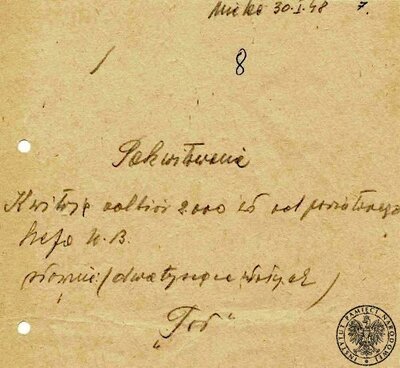 Nisko 30.I.48 7.
8
Pokwitowanie
Kwituję odbiór 2000 zł od powiatowego
Szefa U.B.
słownie/dwatysiące złotych/
"Toś"
INSTYTUT PAMIĘCI NARODOWEJ